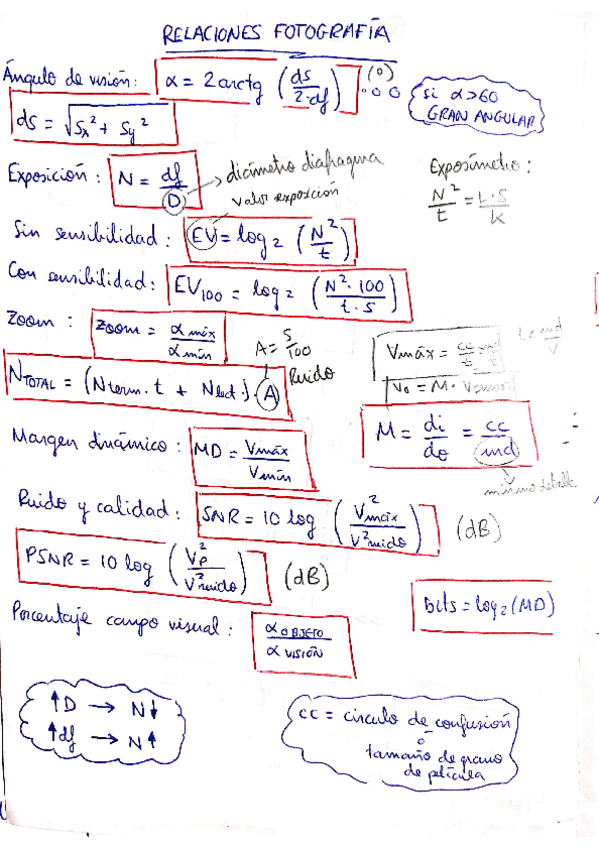 RELACIONES FOTOGRAFÍA
Ángulo de visión: α = 2 arctg (ds / 2·df) (º)
si α>60
GRAN ANGULAR
ds = √(Sx² + Sy²)
Exposición: N = df / D → diámetro diafragma
Exposímetro:
N² / t = L·S / K
valor exposición
Sin sensibilidad: EV = log₂ (N² / t)
Con sensibilidad: EV₁₀₀ = log₂ (N²·100 / t·s)
Zoom: Zoom = α máx / α mín
A = S / 100
Ruido
Vmáx = cc
NTOTAL = (Nterm. t + Nlect.)·A
V₀ = M·
M = di / do = cc / md
mínimo detalle
Margen dinámico: MD = Vmáx / Vmín
Ruido y calidad: SNR = 10 log (V²máx / V²ruido) (dB)
PSNR = 10 log (Vp² / V²ruido) (dB)
bits = log₂(MD)
Porcentaje campo visual: α OBJETO / α VISIÓN
↑D → N↓
↑df → N↑
cc = círculo de confusión
ó
tamaño de grano
de película